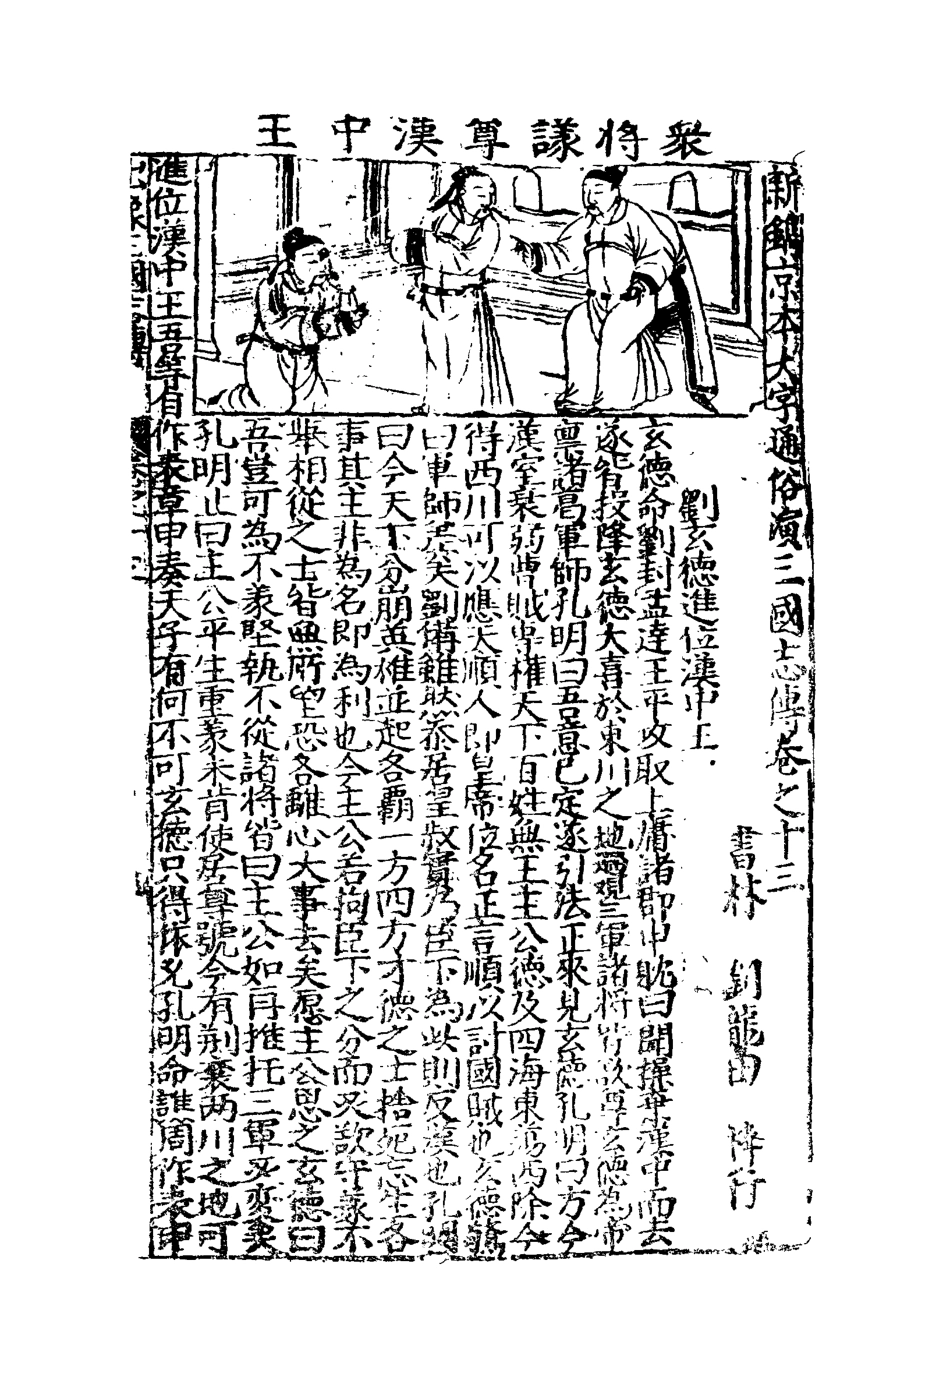 眾將議尊漢中王
新鋟京本大字通俗演三國志傳卷之十三
書林 劉龍田 梓行
劉玄德進位漢中王
玄德命劉封孟達王平攻取上庸諸郡申耽曰聞操棄漢中而去
遂皆投降玄德大喜於東川之地 三軍諸將皆欲尊玄德為帝
禀諸葛軍師孔明曰吾意已定遂引法正來見玄德孔明曰方今
漢室衰弱曹賊專權天下百姓無王主公德及四海東蕩西除今
得西川可以應天順人即皇帝位名正言順以討國賊也玄德驚
曰軍師差矣劉備雖然忝居皇叔實乃臣下為此則反漢也孔明
曰今天下分崩英雄並起各霸一方四方才德之士捨死忘生各
事其主非為名即為利也今主公若拘臣下之分而又欲守義不
舉相從之士皆無所望恐各離心大事去矣愿主公思之玄德曰
吾豈可為不義堅執不從諸將皆曰主公如再推托三軍必變矣
孔明止曰主公平生重義未肯使居尊號今有荊襄两川之地可
進位漢中王吾等自作表章申奏天子有何不可玄德只得依允孔明命譙周作表申